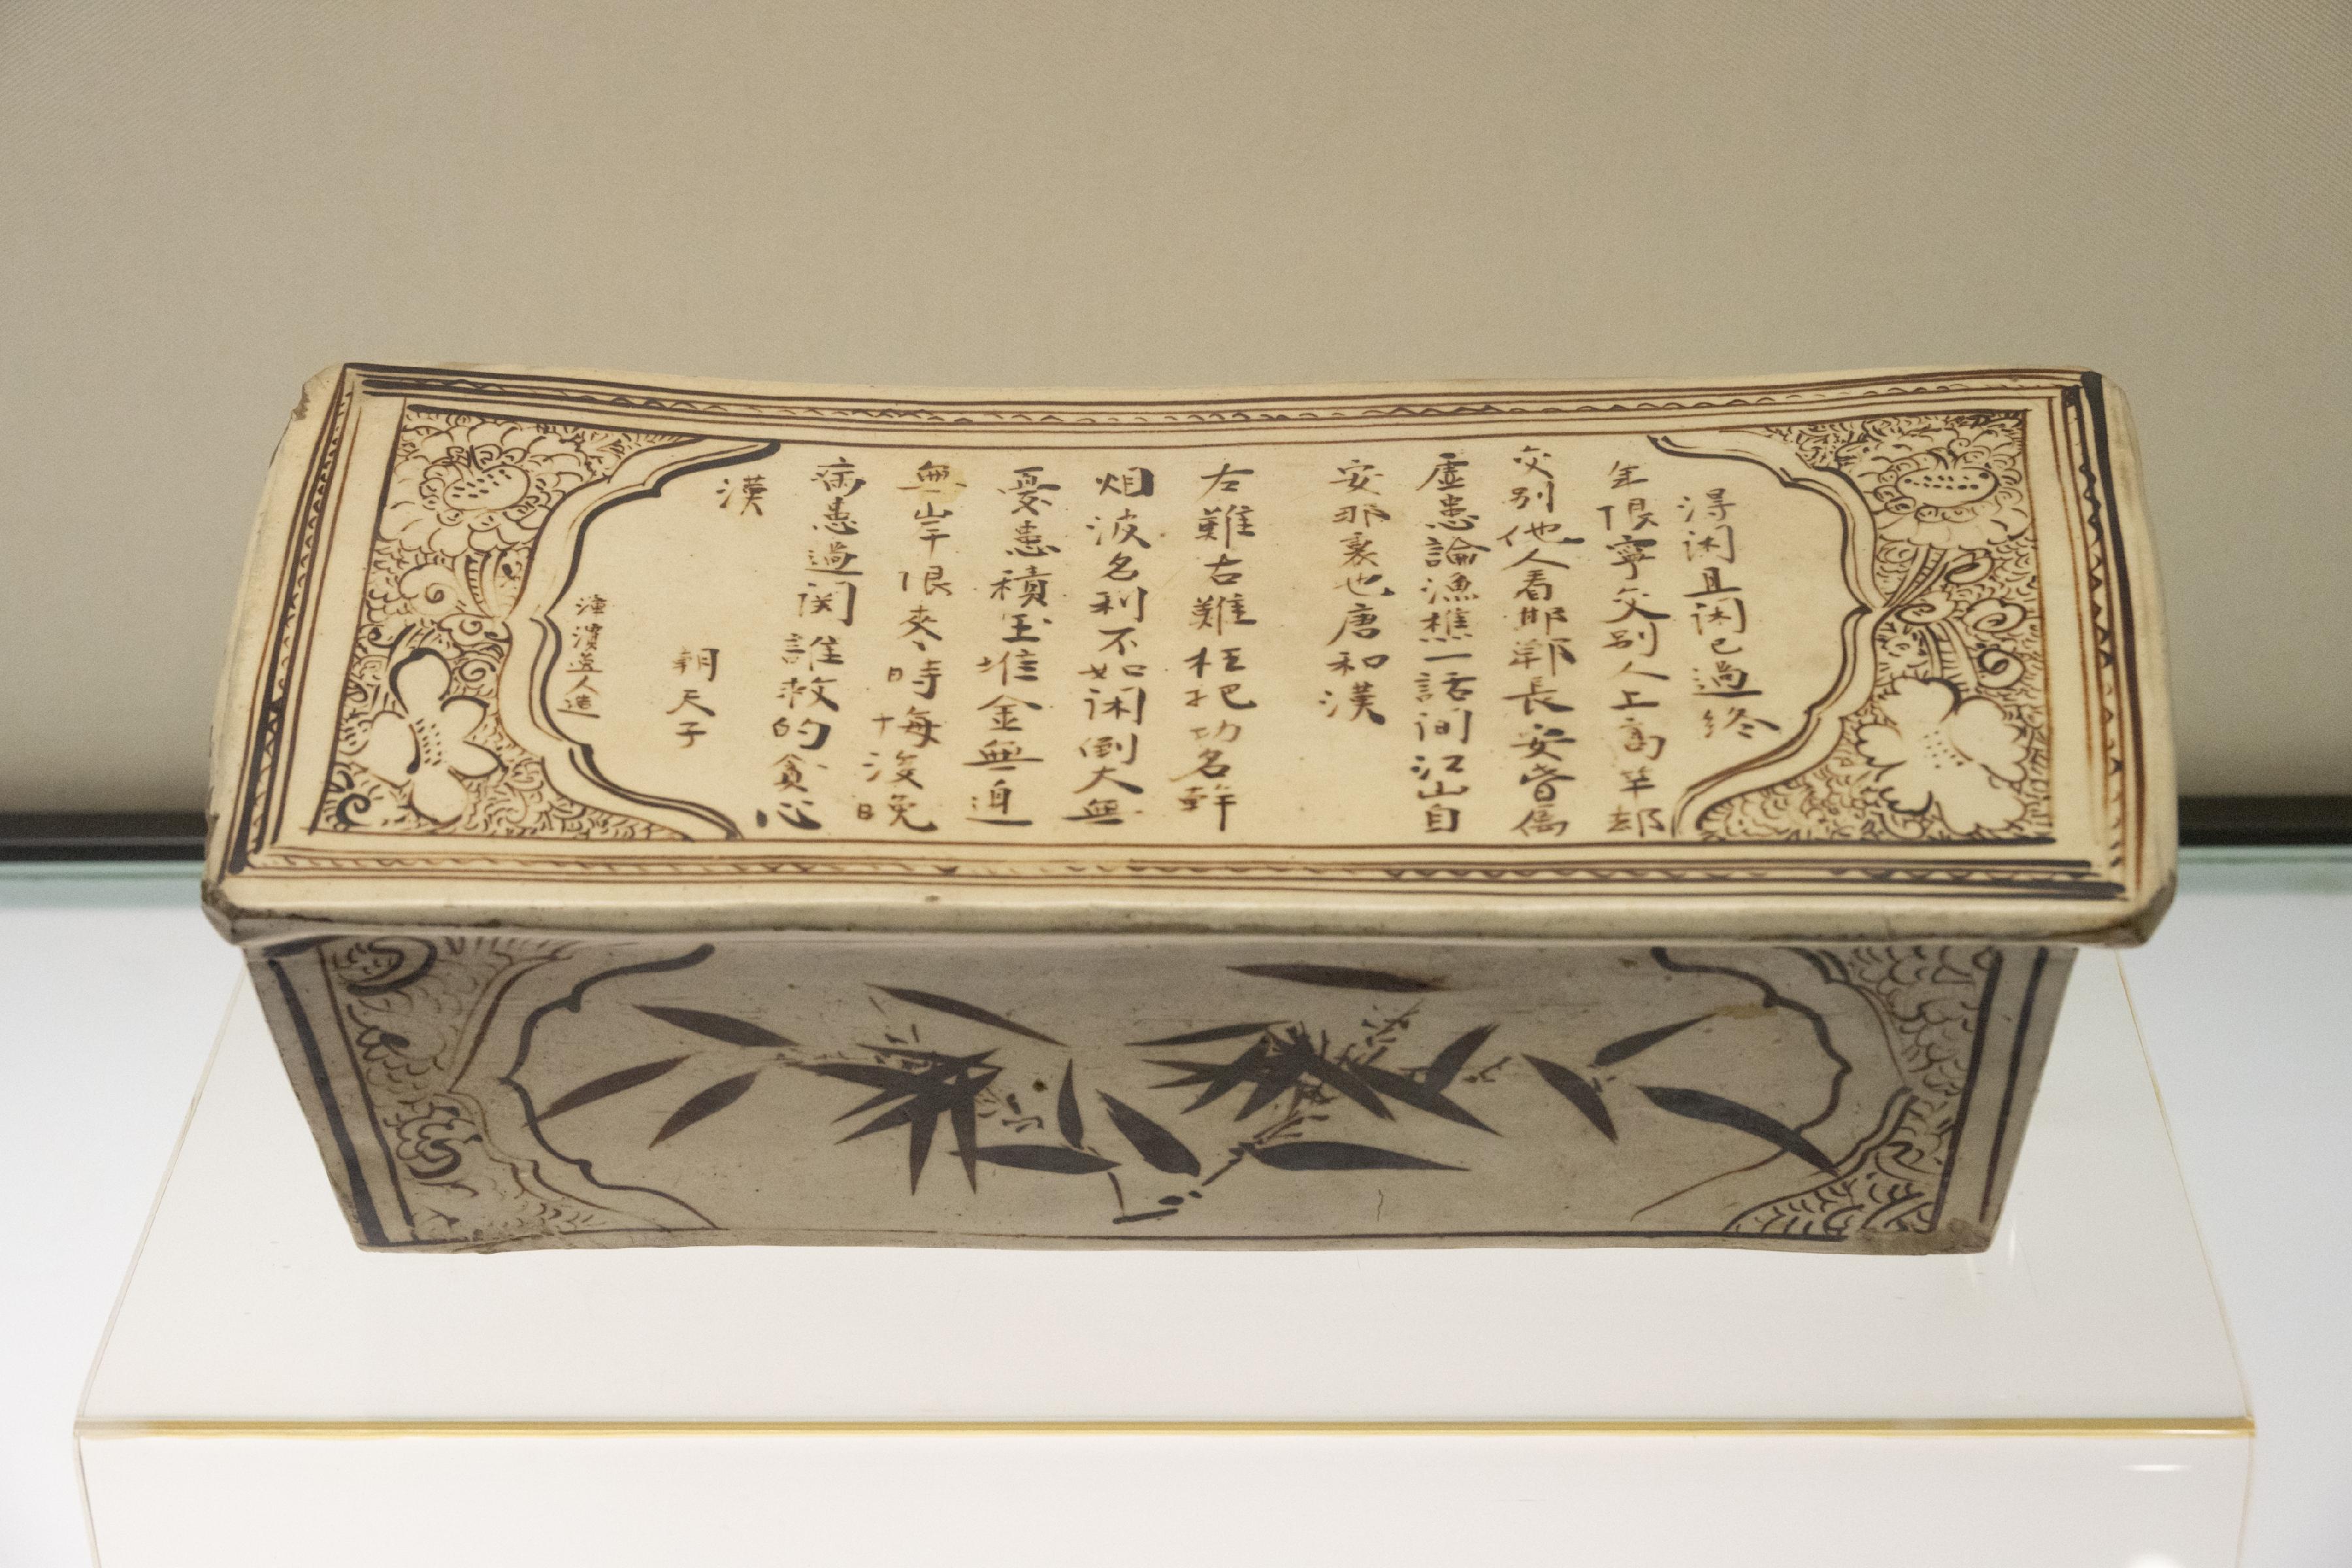 淂闲且闲已過终
年限寧交别人上高竿却
交别他人看邯鄲長安皆属
虛患論漁樵一話间江山自
安那裏也唐和漢
左難右難枉把功名幹
烟波名利不如闲倒大無
憂患積玉堆金無邉
無岸限來時悔後晚
病患過関誰救的貪心
漢
朝天子
漳濱逸人造